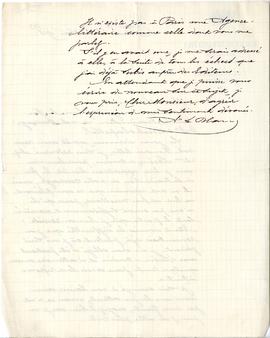 Il n'existe pas à Paris une Agence
littéraire comme celle dont vous me
parlez.
S'il y en avait une, je me serais adressé
à elle, à la suite de tous les échecs que
j'ai déjà subis auprès des Editeurs.
En attendant que je puisse vous
écrire de nouveau sur ce sujet, je
vous prie, Cher Monsieur, d'agréer
l'expression de mes sentiments dévoués.